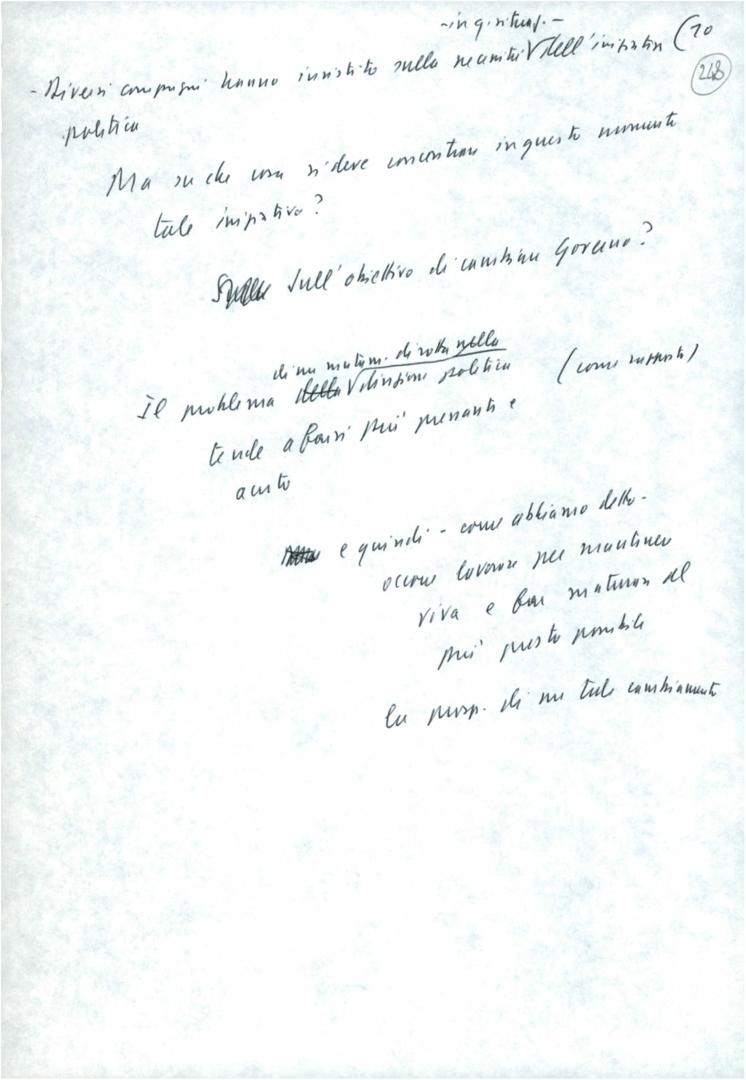 - in q. situaz. - (10
248
- Diversi compagni hanno insistito sulla necessità dell'iniziativa
politica
Ma su che cosa si deve concentrare in questo momento
tale iniziativa?
Sull'obiettivo di cambiare Governo?
di un mutam. di rotta nella
Il problema della direzione politica (come
tende a farsi più pressante e
acuto
e quindi - come abbiamo detto -
occorre lavorare per mantenere
viva e far maturare al
più presto possibile
la prosp. di un tale cambiamento